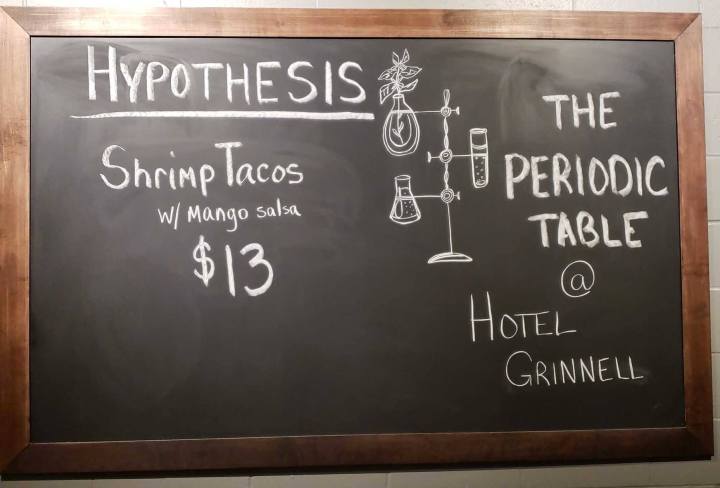 HYPOTHESIS
Shrimp Tacos
w/ Mango salsa
$13
THE
PERIODIC
TABLE
@
HOTEL
GRINNELL